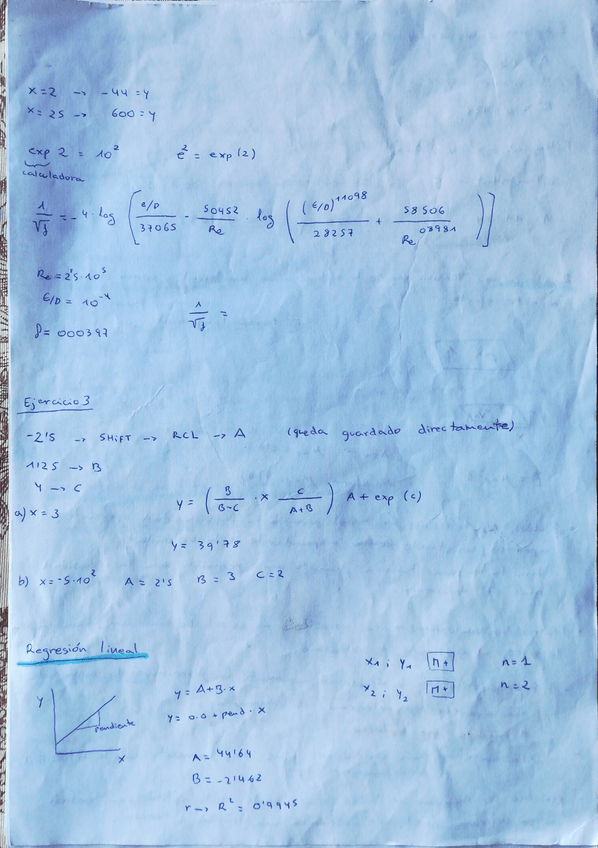 x=2 → -44 = y
x=25 → 600 = y
exp 2 = 10² e² = exp(2)
calculadora
1/√f = -4 · log [ (ε/D)/37065 - 50452/Re · log ( (ε/D)^11098/28257 + 58506/Re^08981 ) ]
Re = 2'5·10⁵
ε/D = 10⁻⁴
1/√f =
f = 000397
Ejercicio 3
-2'5 → SHIFT → RCL → A (queda guardado directamente)
1125 → B
4 → C
a) x = 3 y = ( B/(B-C) · x C/(A+B) ) A + exp (c)
y = 39'78
b) x = -5·10² A = 2'5 B = 3 C = 2
Regresión lineal
x₁ ; y₁ M+ n=1
x₂ ; y₂ M+ n=2
y
y = A+B·x
pendiente
y = 0.0 + pend · x
x
A = 44'64
B = -2'1462
r → R² = 0'9945